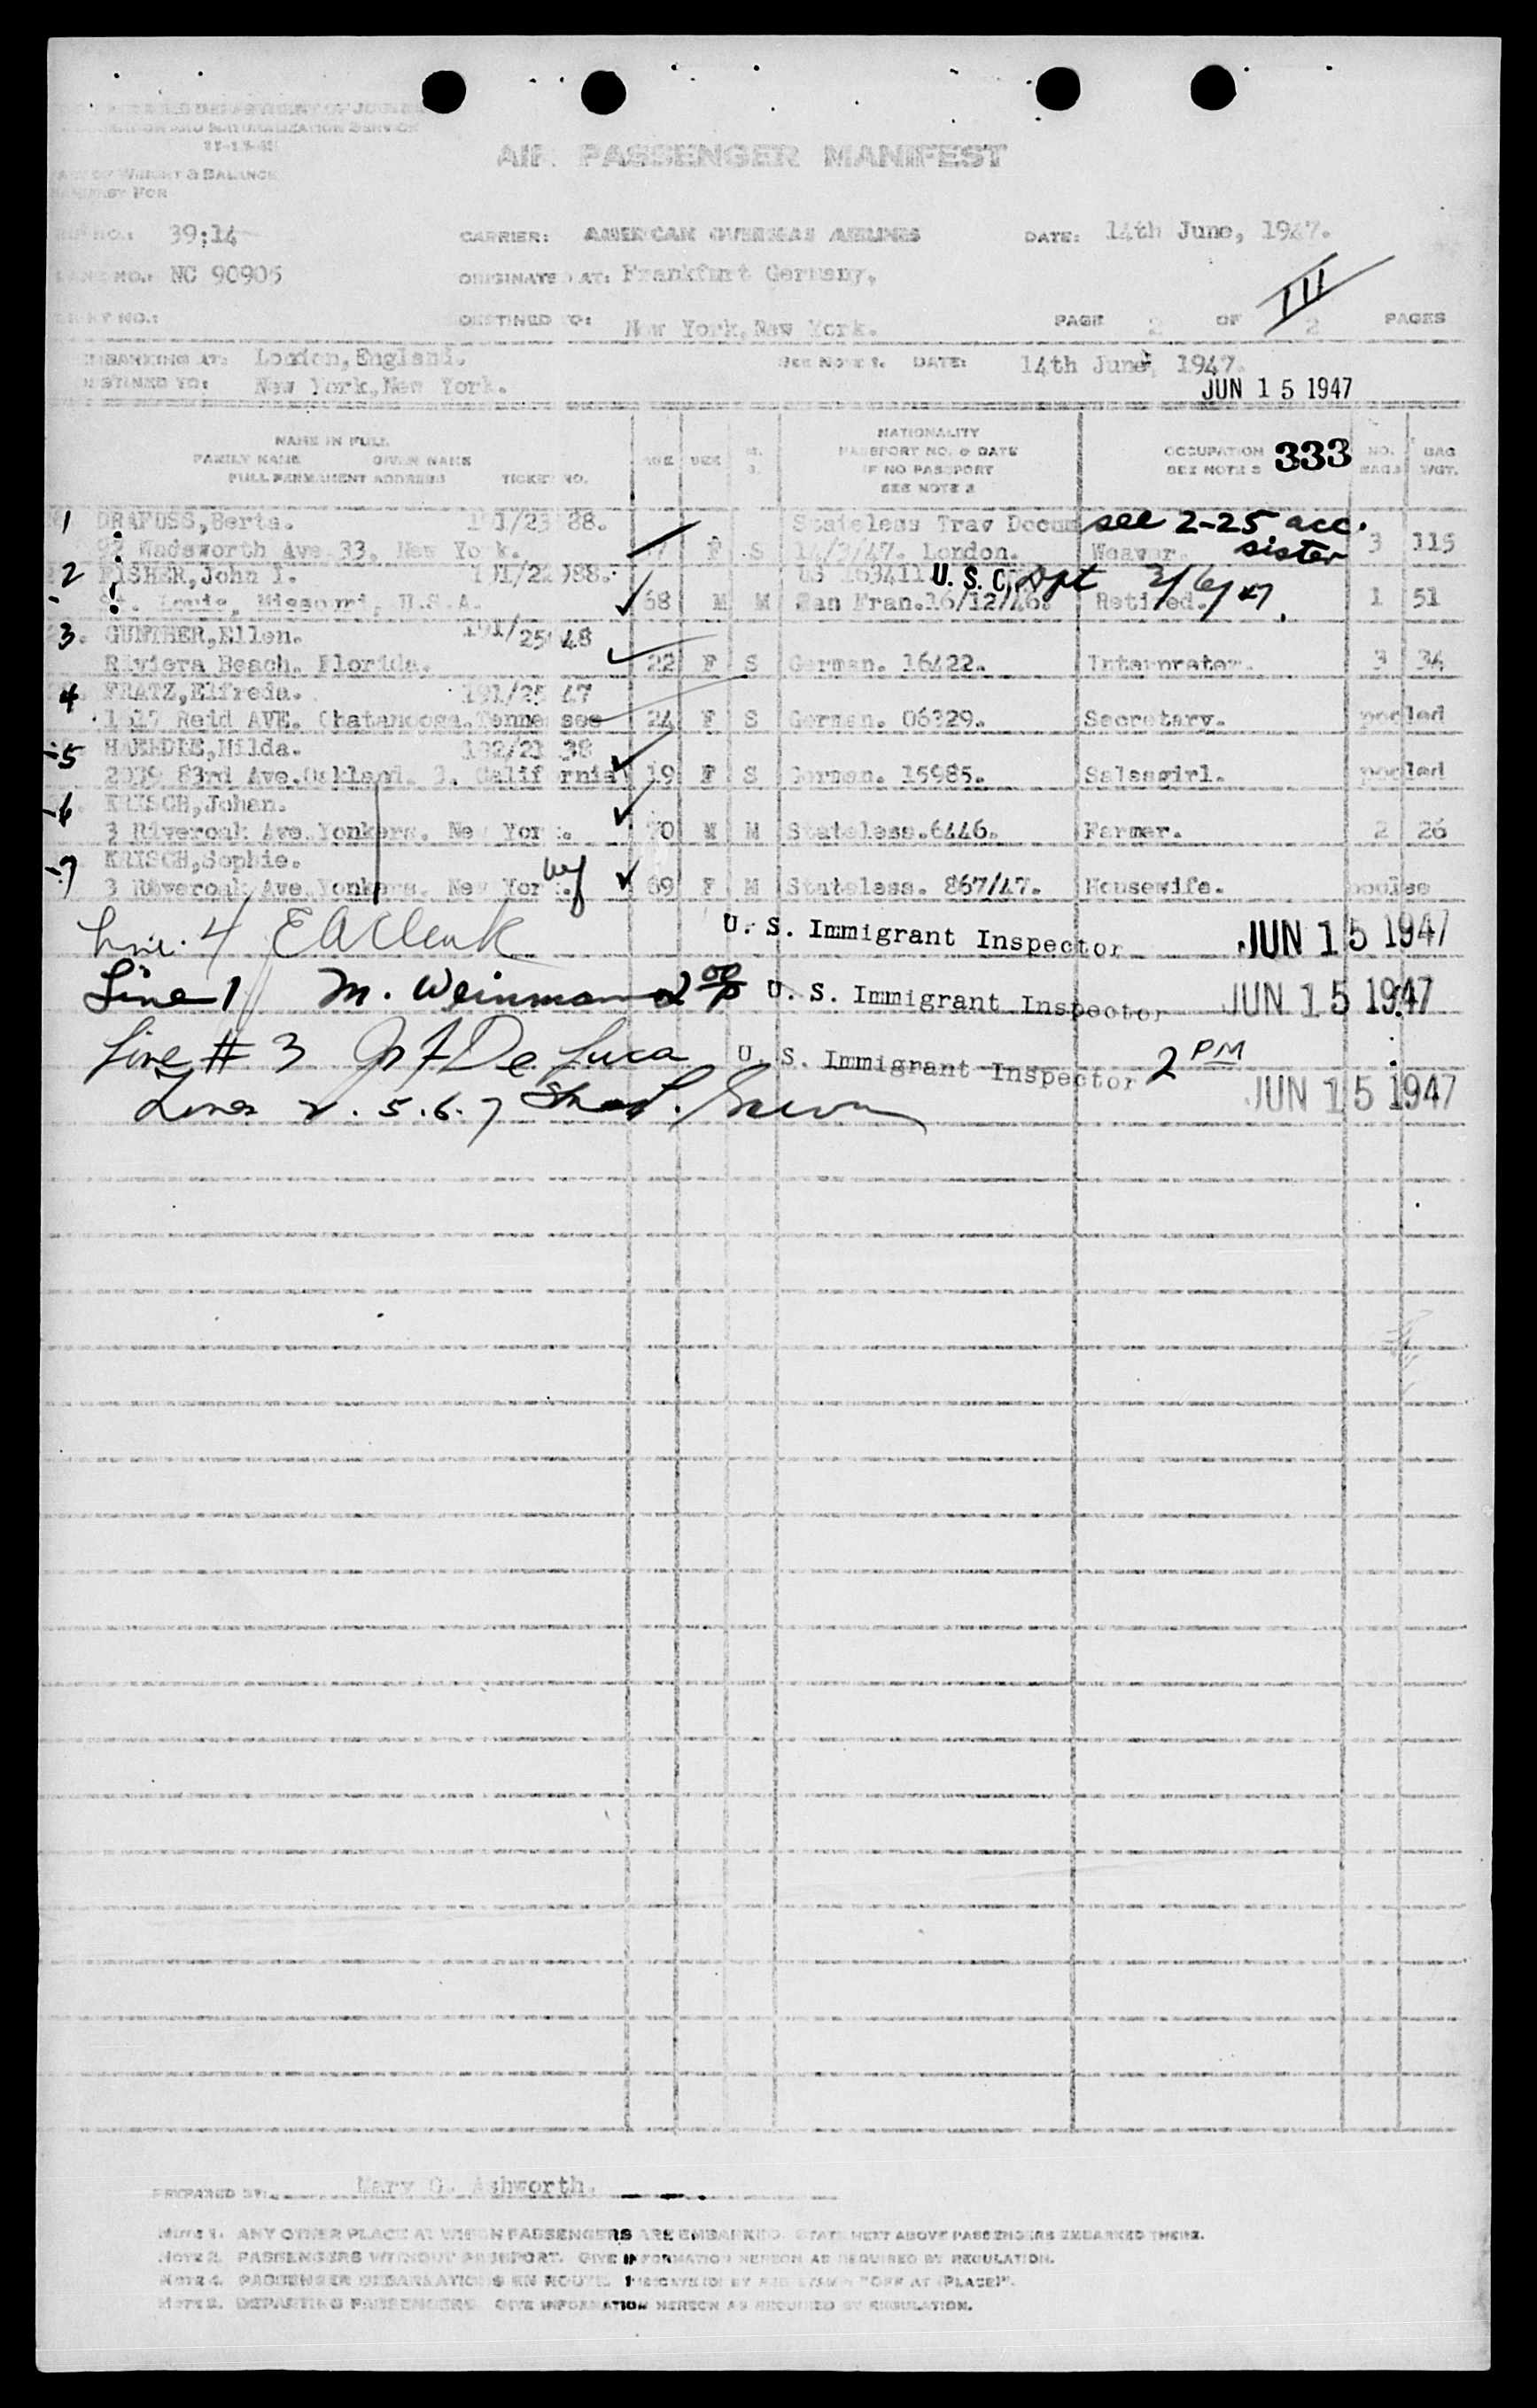 DEPARTMENT OF JUSTICE
IMMIGRATION AND NATURALIZATION SERVICE
AIR PASSENGER MANIFEST
WEIGHT & BALANCE
FOR
NO.: 39:14
CARRIER: AMERICAN OVERSEAS AIRLINES
DATE: 14th June, 1947.
NO.: NC 90905
ORIGINATED AT: Frankfurt Germany,
III
NO.:
DESTINED TO: New York, New York.
PAGE 2 OF 2 PAGES
EMBARKING AT: London, England.
SEE NOTE 1. DATE: 14th June, 1947.
DESTINED TO: New York, New York.
JUN 15 1947
NAME IN FULL
FAMILY NAME GIVEN NAME
FULL PERMANENT ADDRESS TICKET NO.
AGE SEX M. S.
NATIONALITY
PASSPORT NO. & DATE
IF NO PASSPORT
SEE NOTE 2
OCCUPATION
SEE NOTE 3
333
NO. BAGS
BAG WGT.
1 DRAFUSS, Berta. Stateless Trav Docum see 2-25 acc. sister
Wadsworth Ave 33, New York. F S 14/3/47. London. Weaver. 3 115
2 FISHER, John I. U.S.C. Ppt 2/6/47
St. Louis, Missouri, U.S.A. 68 M M San Fran. 16/12/46. Retired. 1 51
3. GUNTHER, Ellen. 191/25 48
Riviera Beach. Florida. 22 F S German. 16422. Interpreter. 3 34
4 FRATZ, Elfreda. 191/25 47
1517 Reid AVE. Chatanooga. Tennessee 24 F S German. 06329. Secretary. pooled
5 HAERDLE, Hilda. 192/23 38
2039 83rd Ave. Oakland. 3. California 19 F S German. 15985. Salesgirl. pooled
6 KRISCH, Johan.
3 Riveroak Ave. Yonkers. New York. 70 M M Stateless. 6446. Farmer. 2 26
7 KRISCH, Sophie.
3 Riveroak Ave. Yonkers. New York. wf 69 F M Stateless. 867/47. Housewife. pooled
Line 4 E A Clark U. S. Immigrant Inspector JUN 15 1947
Line 1 M. Weinman 2 00 P U. S. Immigrant Inspector JUN 15 1947
Line # 3 De Luca U. S. Immigrant Inspector 2 PM
Lines 2. 5. 6. 7 JUN 15 1947
PREPARED BY: Mary G. Ashworth.
NOTE 1. ANY OTHER PLACE AT WHICH PASSENGERS ARE EMBARKED. STATE NEXT ABOVE PASSENGERS EMBARKED THERE.
NOTE 2. PASSENGERS WITHOUT PASSPORT. GIVE INFORMATION HEREON AS REQUIRED BY REGULATION.
PASSENGER DEBARKATIONS EN ROUTE. INDICATE BY "OFF AT (PLACE)".
DEPARTING PASSENGERS. GIVE INFORMATION HEREON AS REQUIRED BY REGULATION.